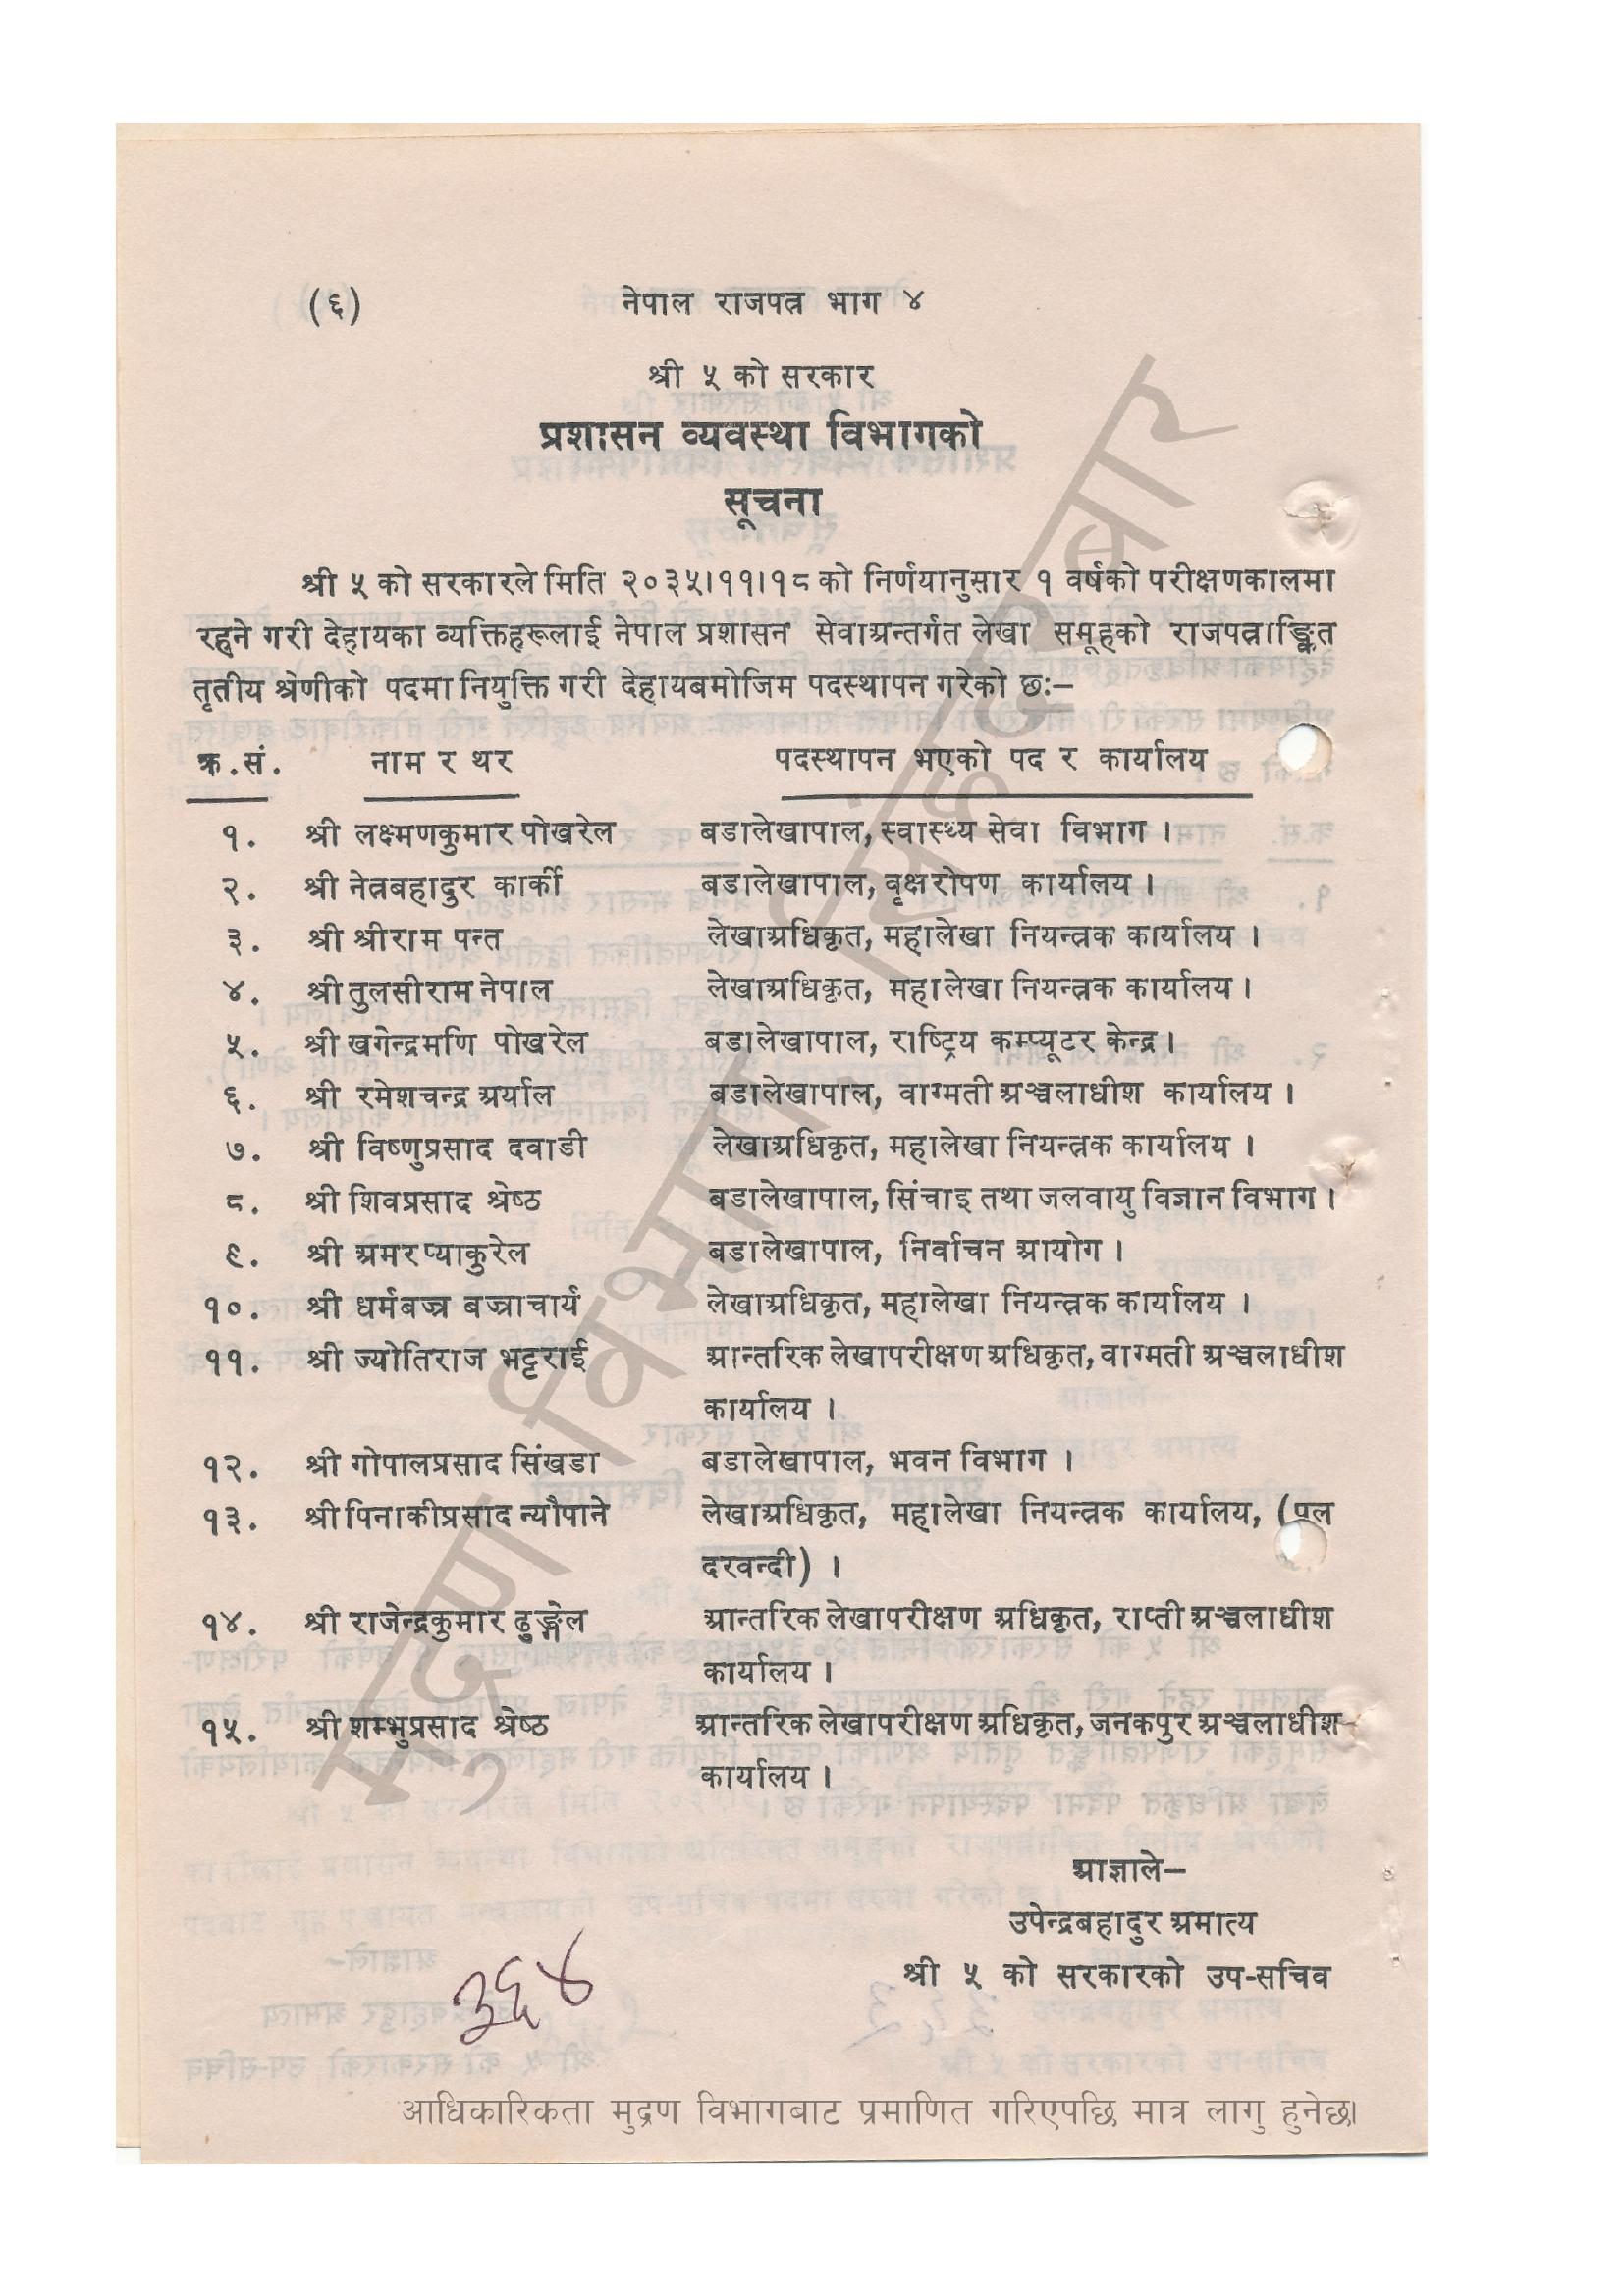 (६)
नेपाल राजपत्र भाग ४
श्री ५ को सरकार
प्रशासन व्यवस्था विभागको
सूचना
श्री ५ को सरकारले मिति २०३५।११।१८ को निर्णयानुसार १ वर्षको परीक्षणकालमा
रहने गरी देहायका व्यक्तिहरूलाई नेपाल प्रशासन सेवाअन्तर्गत लेखा समूहको राजपत्राङ्कित
तृतीय श्रेणीको पदमा नियुक्ति गरी देहायबमोजिम पदस्थापन गरेको छः–
क्र.सं. नाम र थर पदस्थापन भएको पद र कार्यालय
१. श्री लक्ष्मणकुमार पोखरेल बडालेखापाल, स्वास्थ्य सेवा विभाग ।
२. श्री नेत्रबहादुर कार्की बडालेखापाल, वृक्षरोपण कार्यालय ।
३. श्री श्रीराम पन्त लेखाअधिकृत, महालेखा नियन्त्रक कार्यालय ।
४. श्री तुलसीराम नेपाल लेखाअधिकृत, महालेखा नियन्त्रक कार्यालय ।
५. श्री खगेन्द्रमणि पोखरेल बडालेखापाल, राष्ट्रिय कम्प्यूटर केन्द्र ।
६. श्री रमेशचन्द्र अर्याल बडालेखापाल, वाग्मती अञ्चलाधीश कार्यालय ।
७. श्री विष्णुप्रसाद दवाडी लेखाअधिकृत, महालेखा नियन्त्रक कार्यालय ।
८. श्री शिवप्रसाद श्रेष्ठ बडालेखापाल, सिंचाइ तथा जलवायु विज्ञान विभाग ।
९. श्री अमर प्याकुरेल बडालेखापाल, निर्वाचन आयोग ।
१०. श्री धर्मबज्र बज्राचार्य लेखाअधिकृत, महालेखा नियन्त्रक कार्यालय ।
११. श्री ज्योतिराज भट्टराई आन्तरिक लेखापरीक्षण अधिकृत, वाग्मती अञ्चलाधीश
कार्यालय ।
१२. श्री गोपालप्रसाद सिंखडा बडालेखापाल, भवन विभाग ।
१३. श्री पिनाकीप्रसाद न्यौपाने लेखाअधिकृत, महालेखा नियन्त्रक कार्यालय, (पुल
दरवन्दी) ।
१४. श्री राजेन्द्रकुमार ढुङ्गेल आन्तरिक लेखापरीक्षण अधिकृत, राप्ती अञ्चलाधीश
कार्यालय ।
१५. श्री शम्भुप्रसाद श्रेष्ठ आन्तरिक लेखापरीक्षण अधिकृत, जनकपुर अञ्चलाधीश
कार्यालय ।
आज्ञाले–
उपेन्द्रबहादुर अमात्य
श्री ५ को सरकारको उप-सचिव
३६४
आधिकारिकता मुद्रण विभागबाट प्रमाणित गरिएपछि मात्र लागु हुनेछ।
मुद्रण विभाग, सिंहदरबार